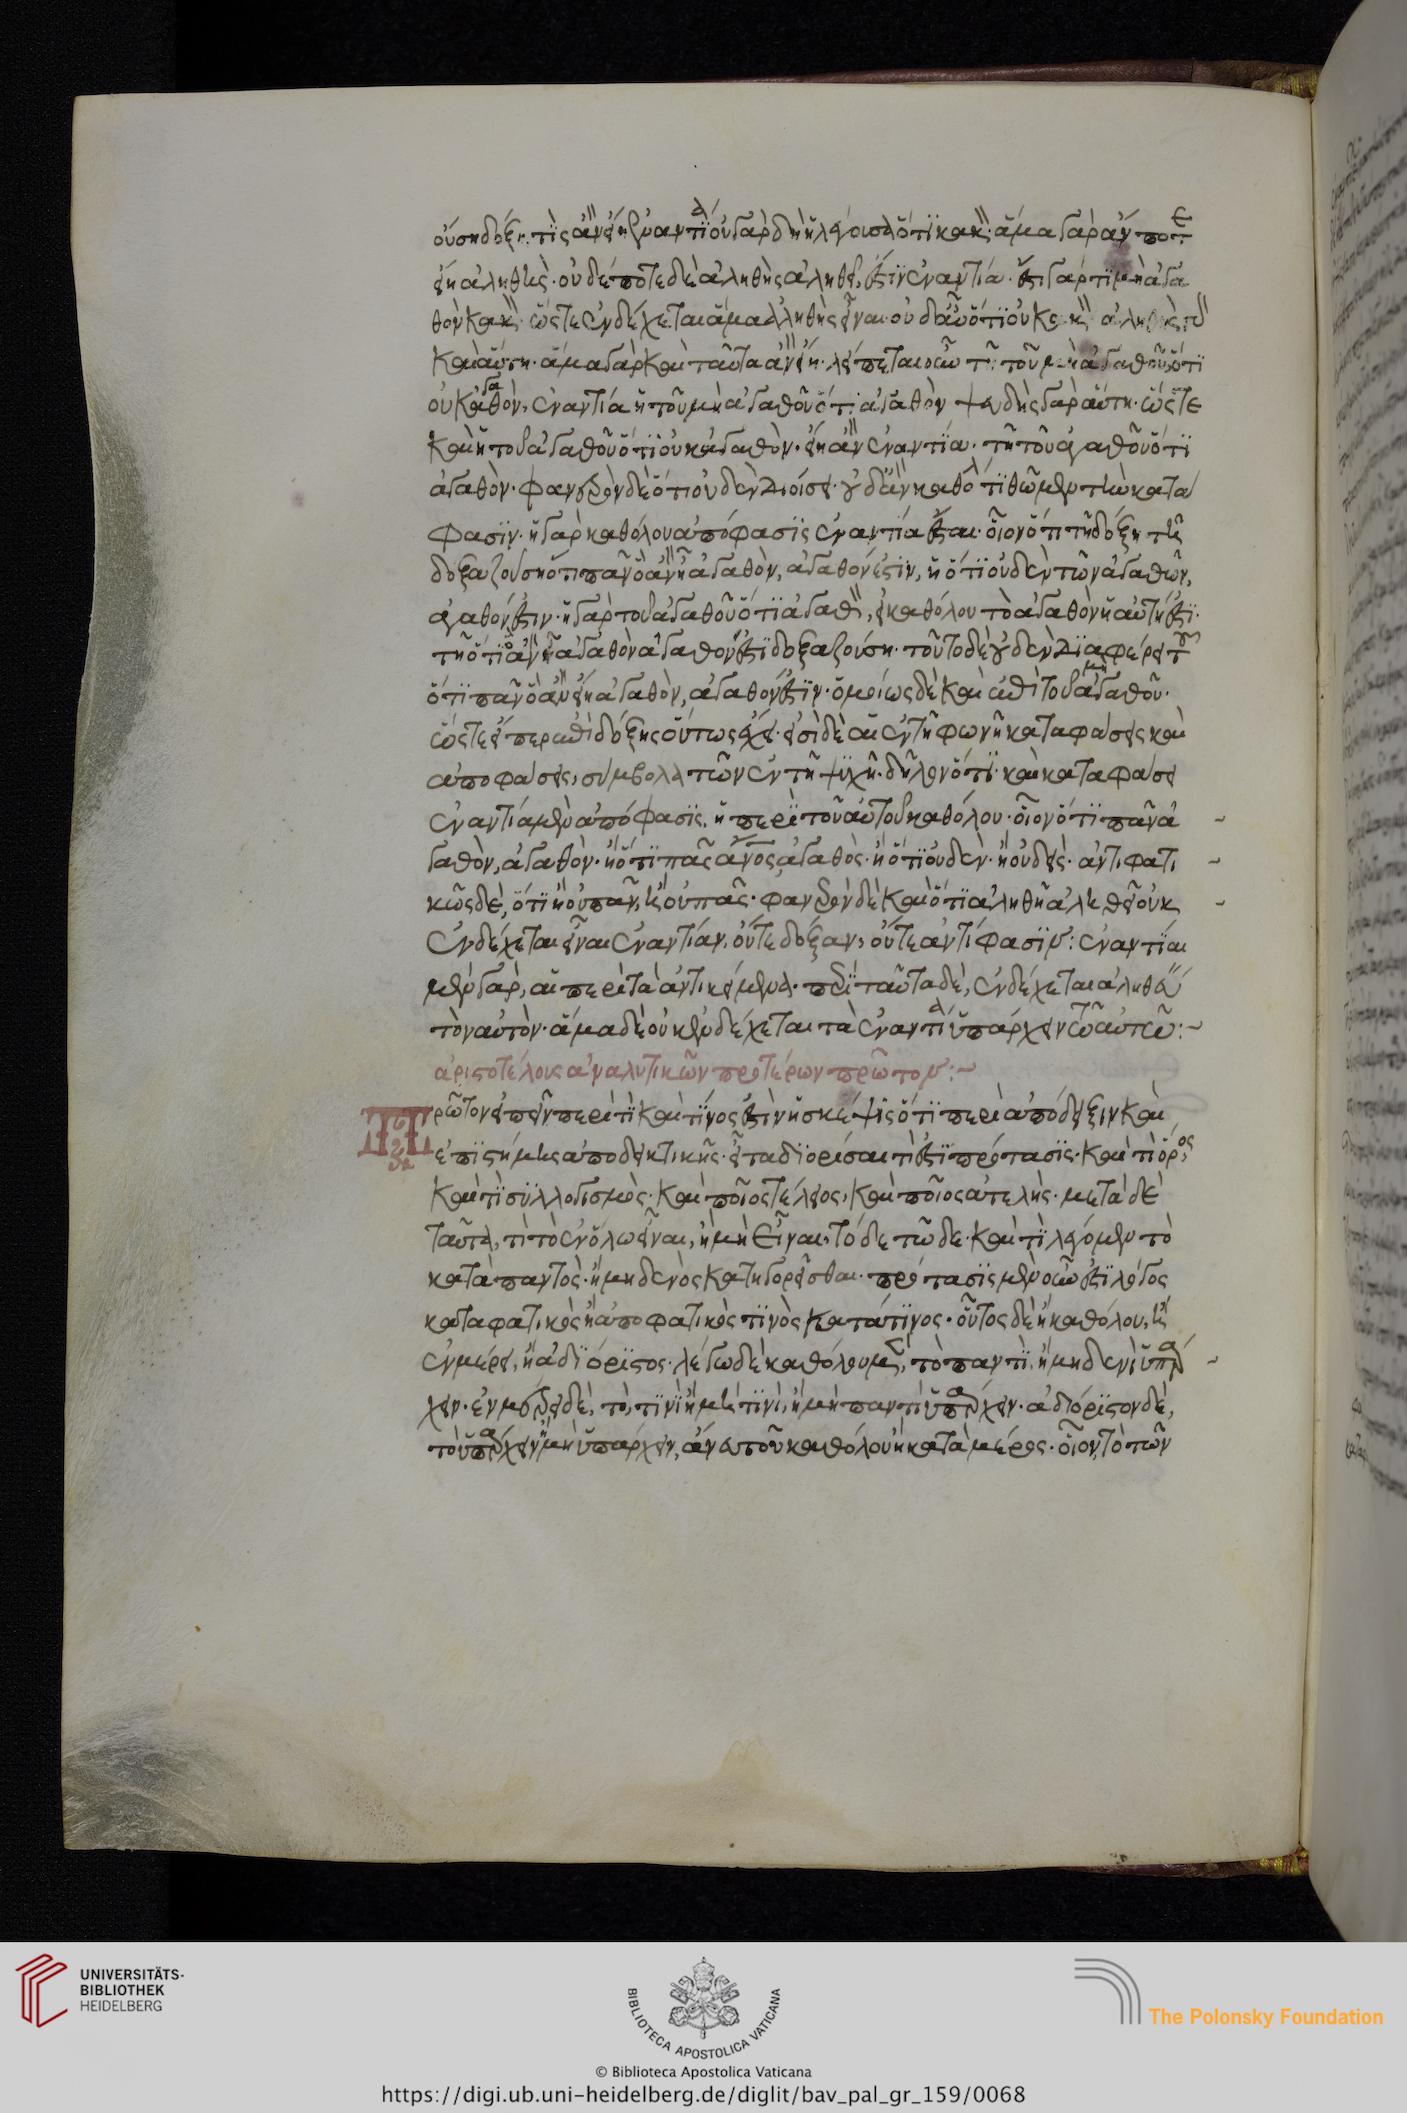 οὔσῃ δόξῃ. τίς ἂν εἴη ἐναντία οὐ γὰρ δὴ ἡ λέγουσα ὅτι κακόν· ἅμα γὰρ ἄν ποτε
εἴη ἀληθής· οὐδέποτε δὲ ἀληθὴς ἀληθεῖ, ἐστὶν ἐναντία· ἔστι γάρ τι μὴ ἀγα
θὸν κακόν· ὥστε ἐνδέχεται ἅμα ἀληθὴς εἶναι· οὐδ' αὖ ὅτι οὐ κακόν ἀληθὴς
καὶ αὕτη· ἅμα γὰρ καὶ ταῦτα ἂν εἴη· λείπεται οὖν τῇ τοῦ μὴ ἀγαθοῦ ὅτι
οὐκ ἀγαθὸν, ἐναντία ἡ τοῦ μὴ ἀγαθοῦ ὅτι ἀγαθὸν ψευδὴς γὰρ αὕτη· ὥστε
καὶ ἡ τοῦ ἀγαθοῦ ὅτι οὐκ ἀγαθὸν· εἴη ἂν ἐναντία· τῇ τοῦ ἀγαθοῦ ὅτι
ἀγαθὸν· φανερὸν δὲ ὅτι οὐδὲν διοίσει· οὐδ' ἂν καθόλου τιθῶμεν τὴν κατά
φασιν· ἡ γὰρ καθόλου ἀπόφασις ἐναντία ἔσται· οἷον ὅτι τῇ δόξῃ τῇ
δοξαζούσῃ ὅτι πᾶν ὃ ἂν ᾖ ἀγαθὸν, ἀγαθόν ἐστιν, ἡ ὅτι οὐδὲν τῶν ἀγαθῶν,
ἀγαθόν ἐστιν· ἡ γὰρ τοῦ ἀγαθοῦ ὅτι ἀγαθόν, εἰ καθόλου τὸ ἀγαθὸν ἡ αὐτή ἐστι·
τῇ ὅτι ὃ ἂν ᾖ ἀγαθὸν ἀγαθόν ἐστι δοξαζούσῃ· τοῦτο δὲ οὐδὲν διαφέρει τοῦ
ὅτι πᾶν ὃ ἂν εἴη ἀγαθὸν, ἀγαθόν ἐστιν· ὁμοίως δὲ καὶ ἐπὶ τοῦ μὴ ἀγαθοῦ·
ὥστε εἴπερ ἐπὶ δόξης οὕτως ἔχει· εἰσὶ δὲ αἱ ἐν τῇ φωνῇ καταφάσεις καὶ
ἀποφάσεις, σύμβολα τῶν ἐν τῇ ψυχῇ· δῆλον ὅτι καὶ καταφάσει
ἐναντία μὲν ἀπόφασις, ἡ περὶ τοῦ αὐτοῦ καθόλου· οἷον ὅτι πᾶν ἀ
γαθὸν, ἀγαθὸν· ἢ ὅτι πᾶς ἄνος ἀγαθὸς· ἢ ὅτι οὐδὲν· ἢ οὐδείς· ἀντιφατι
κῶς δὲ, ὅτι ἢ οὐ πᾶν, ἢ οὐ πᾶς· φανερὸν δὲ καὶ ὅτι ἀληθῆ ἀληθεῖ οὐκ
ἐνδέχεται εἶναι ἐναντίαν, οὔτε δόξαν, οὔτε ἀντίφασιν: ἐναντίαι
μὲν γὰρ, αἱ περὶ τὰ ἀντικείμενα· περὶ ταῦτα δὲ, ἐνδέχεται ἀληθεύειν
τὸν αὐτὸν· ἅμα δὲ οὐκ ἐνδέχεται τὰ ἐναντία ὑπάρχειν τῷ αὐτῷ:~
ἀριστοτέλους ἀναλυτικῶν προτέρων πρῶτον:~
Πρῶτον εἰπεῖν περὶ τί καὶ τίνος ἐστὶν ἡ σκέψις ὅτι περὶ ἀπόδειξιν καὶ
ἐπιστήμης ἀποδεικτικῆς· εἶτα διορίσαι τί ἐστι πρότασις· καὶ τί ὅρος,
καὶ τί συλλογισμὸς· καὶ ποῖος τέλειος, καὶ ποῖος ἀτελὴς· μετὰ δὲ
ταῦτα, τί τὸ ἐν ὅλῳ εἶναι, ἢ μὴ εἶναι, τόδε τῷδε· καὶ τί λέγομεν τὸ
κατὰ παντὸς· ἢ μηδενὸς κατηγορεῖσθαι· πρότασις μὲν οὖν ἐστὶ λόγος
καταφατικὸς ἢ ἀποφατικὸς τινὸς κατά τινος· οὗτος δὲ ἢ καθόλου, ἢ
ἐν μέρει, ἢ ἀδιόριστος· λέγω δὲ καθόλου μὲν, τὸ παντὶ, ἢ μηδενὶ ὑπάρ
χειν· ἐν μέρει δὲ, τὸ, τινὶ ἢ μὴ τινὶ, ἢ μὴ παντὶ ὑπάρχειν· ἀδιόριστον δὲ,
τὸ ὑπάρχειν ἢ μὴ ὑπάρχειν, ἄνευ τοῦ καθόλου ἢ κατὰ μέρος· οἷον, τὸ τῶν
UNIVERSITÄTS-
BIBLIOTHEK
HEIDELBERG
BIBLIOTECA APOSTOLICA VATICANA
The Polonsky Foundation
© Biblioteca Apostolica Vaticana
https://digi.ub.uni-heidelberg.de/diglit/bav_pal_gr_159/0068